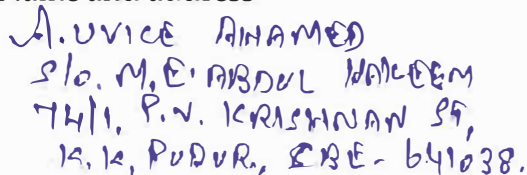 A. UVICE AHAMED
S/o. M.E. ABDUL HALEEM
74/1, P.N. KRISHNAN ST,
K.K. PUDUR., CBE - 641038.